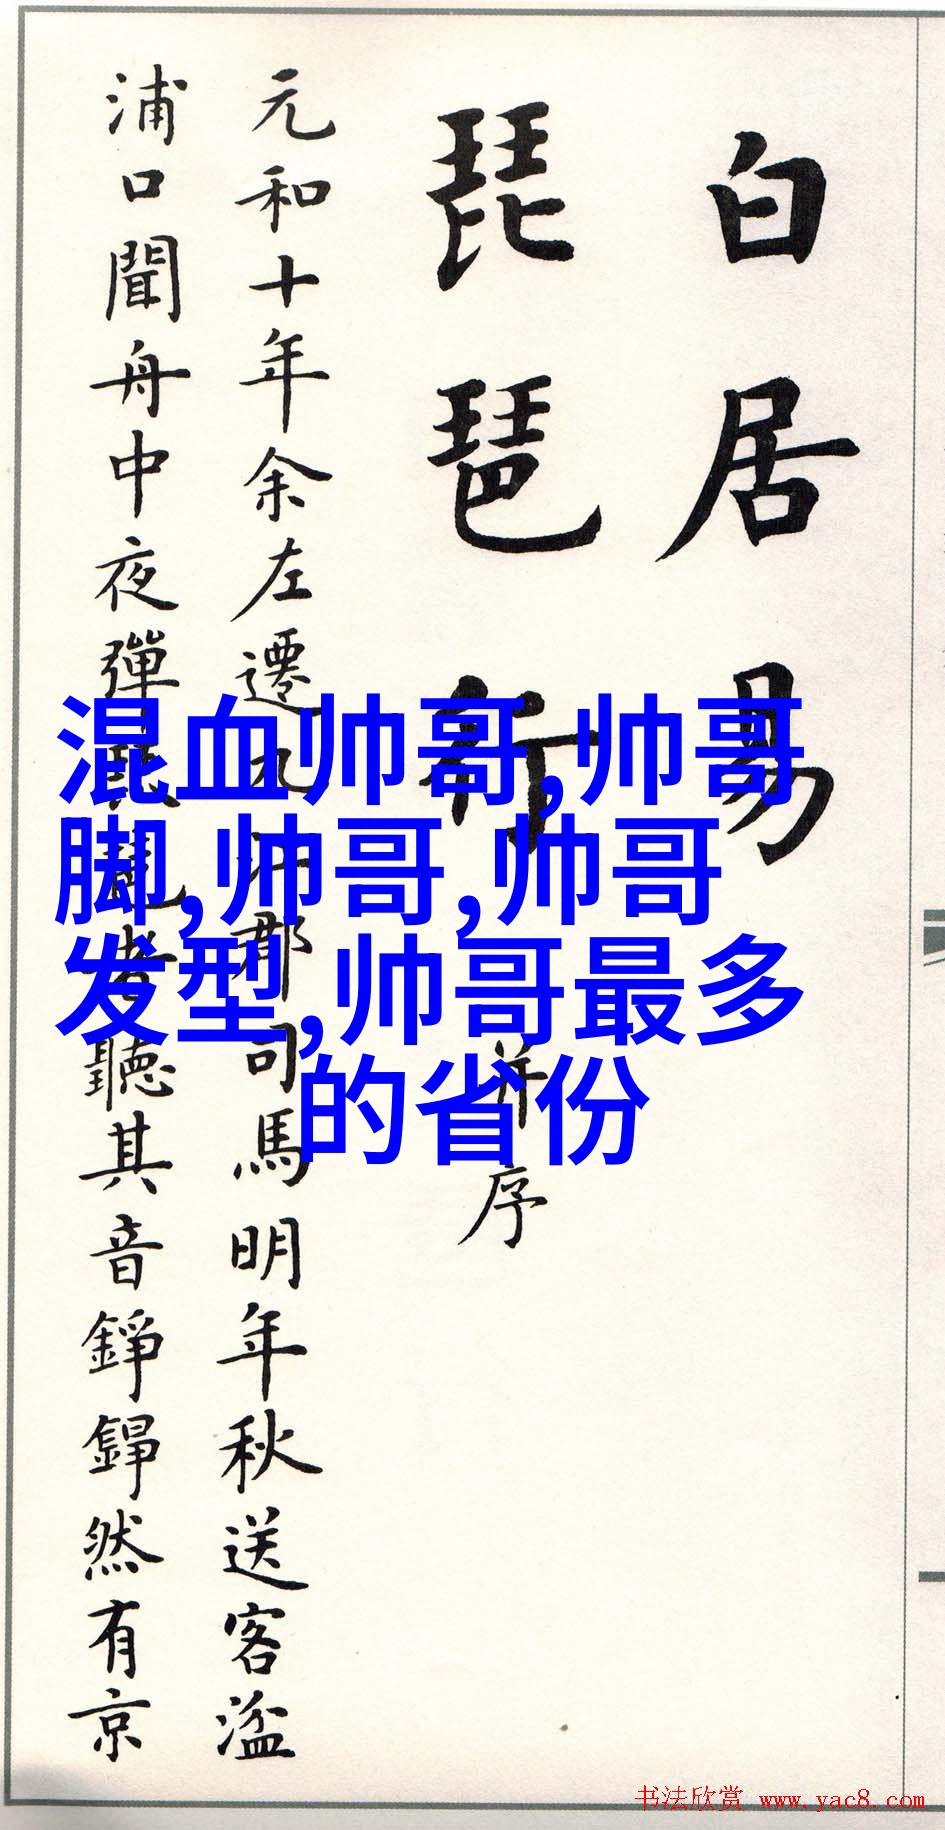 白居易
琵琶行 并序
元和十年余左遷九江郡司馬明年秋送客湓
浦口聞舟中夜彈琵琶者聽其音錚錚然有京
混血帅哥,帅哥
脚,帅哥,帅哥
发型,帅哥最多
的省份
书法欣赏 www.yac8.com